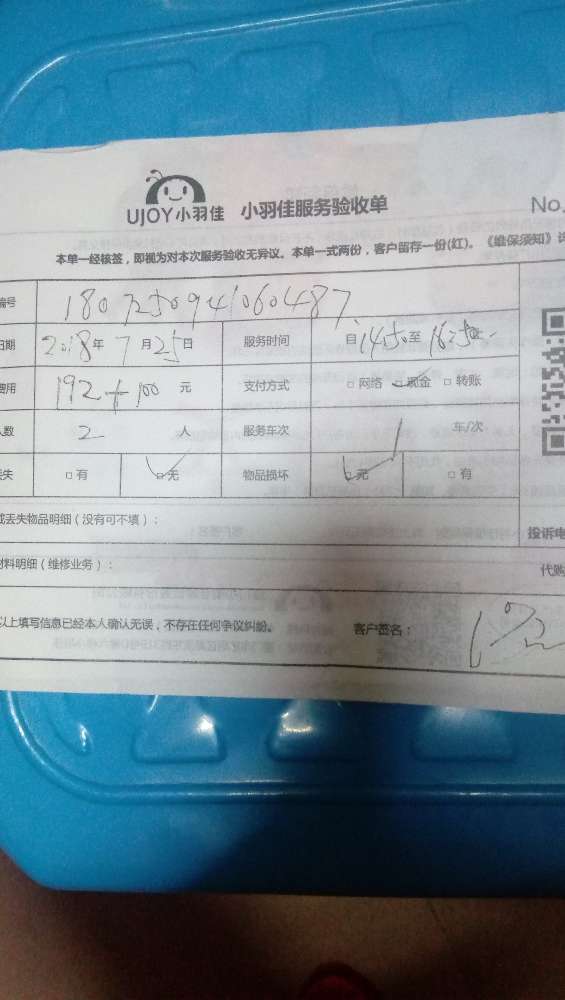 UJOY小羽佳 小羽佳服务验收单 No.
本单一经核签，即视为对本次服务验收无异议。本单一式两份，客户留存一份(红)。《维保须知》
编号 1807250941060487
日期 2018年 7月25日 服务时间 自14:50至16:50
费用 192+100 元 支付方式 □网络 □现金 □转账
人数 2 人 服务车次 1 车/次
丢失 □有 □无 物品损坏 □无 □有
或丢失物品明细（没有可不填）： 投诉电
材料明细（维修业务）： 代购
以上填写信息已经本人确认无误，不存在任何争议纠纷。 客户签名：